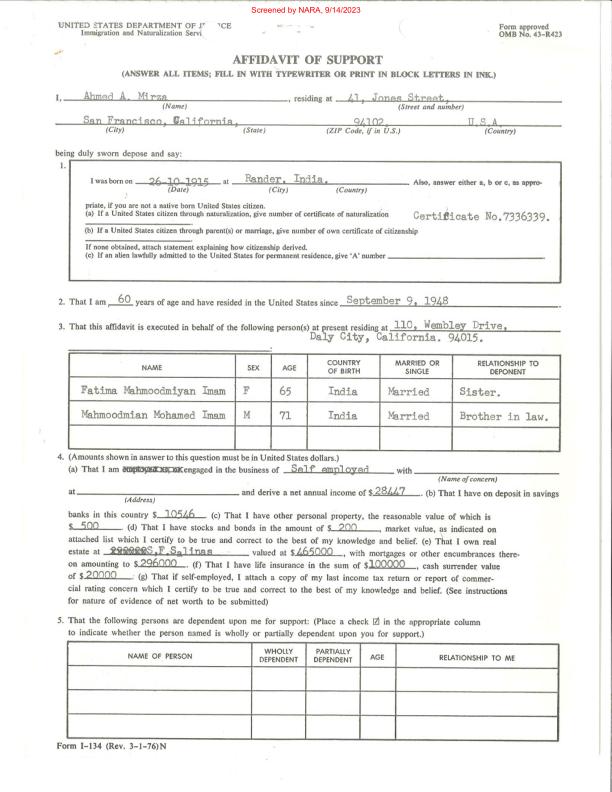 Screened by NARA, 9/14/2023
UNITED STATES DEPARTMENT OF J CE
Immigration and Naturalization Servi
Form approved
OMB No. 43-R423
AFFIDAVIT OF SUPPORT
(ANSWER ALL ITEMS; FILL IN WITH TYPEWRITER OR PRINT IN BLOCK LETTERS IN INK.)
I, Ahmed A. Mirza, residing at 41, Jones Street,
(Name) (Street and number)
San Francisco, California, 94102, U.S.A.
(City) (State) (ZIP Code, if in U.S.) (Country)
being duly sworn depose and say:
1.
I was born on 26-10-1915 at Rander, India. Also, answer either a, b or c, as appro-
(Date) (City) (Country)
priate, if you are not a native born United States citizen.
(a) If a United States citizen through naturalization, give number of certificate of naturalization Certificate No.7336339.
(b) If a United States citizen through parent(s) or marriage, give number of own certificate of citizenship
If none obtained, attach statement explaining how citizenship derived.
(c) If an alien lawfully admitted to the United States for permanent residence, give 'A' number
2. That I am 60 years of age and have resided in the United States since September 9, 1948
3. That this affidavit is executed in behalf of the following person(s) at present residing at 110, Wembley Drive,
Daly City, California. 94015.
NAME SEX AGE COUNTRY OF BIRTH MARRIED OR SINGLE RELATIONSHIP TO DEPONENT
Fatima Mahmoodmiyan Imam F 65 India Married Sister.
Mahmoodmian Mohamed Imam M 71 India Married Brother in law.
4. (Amounts shown in answer to this question must be in United States dollars.)
(a) That I am engaged in the business of Self employed with
(Name of concern)
at and derive a net annual income of $28447. (b) That I have on deposit in savings
(Address)
banks in this country $ 10546. (c) That I have other personal property, the reasonable value of which is
$ 500. (d) That I have stocks and bonds in the amount of $ 200, market value, as indicated on
attached list which I certify to be true and correct to the best of my knowledge and belief. (e) That I own real
estate at S.F.Salinas valued at $465000, with mortgages or other encumbrances there-
on amounting to $296000. (f) That I have life insurance in the sum of $100000, cash surrender value
of $20000. (g) That if self-employed, I attach a copy of my last income tax return or report of commer-
cial rating concern which I certify to be true and correct to the best of my knowledge and belief. (See instructions
for nature of evidence of net worth to be submitted)
5. That the following persons are dependent upon me for support: (Place a check ☑ in the appropriate column
to indicate whether the person named is wholly or partially dependent upon you for support.)
NAME OF PERSON WHOLLY DEPENDENT PARTIALLY DEPENDENT AGE RELATIONSHIP TO ME
Form I-134 (Rev. 3-1-76)N